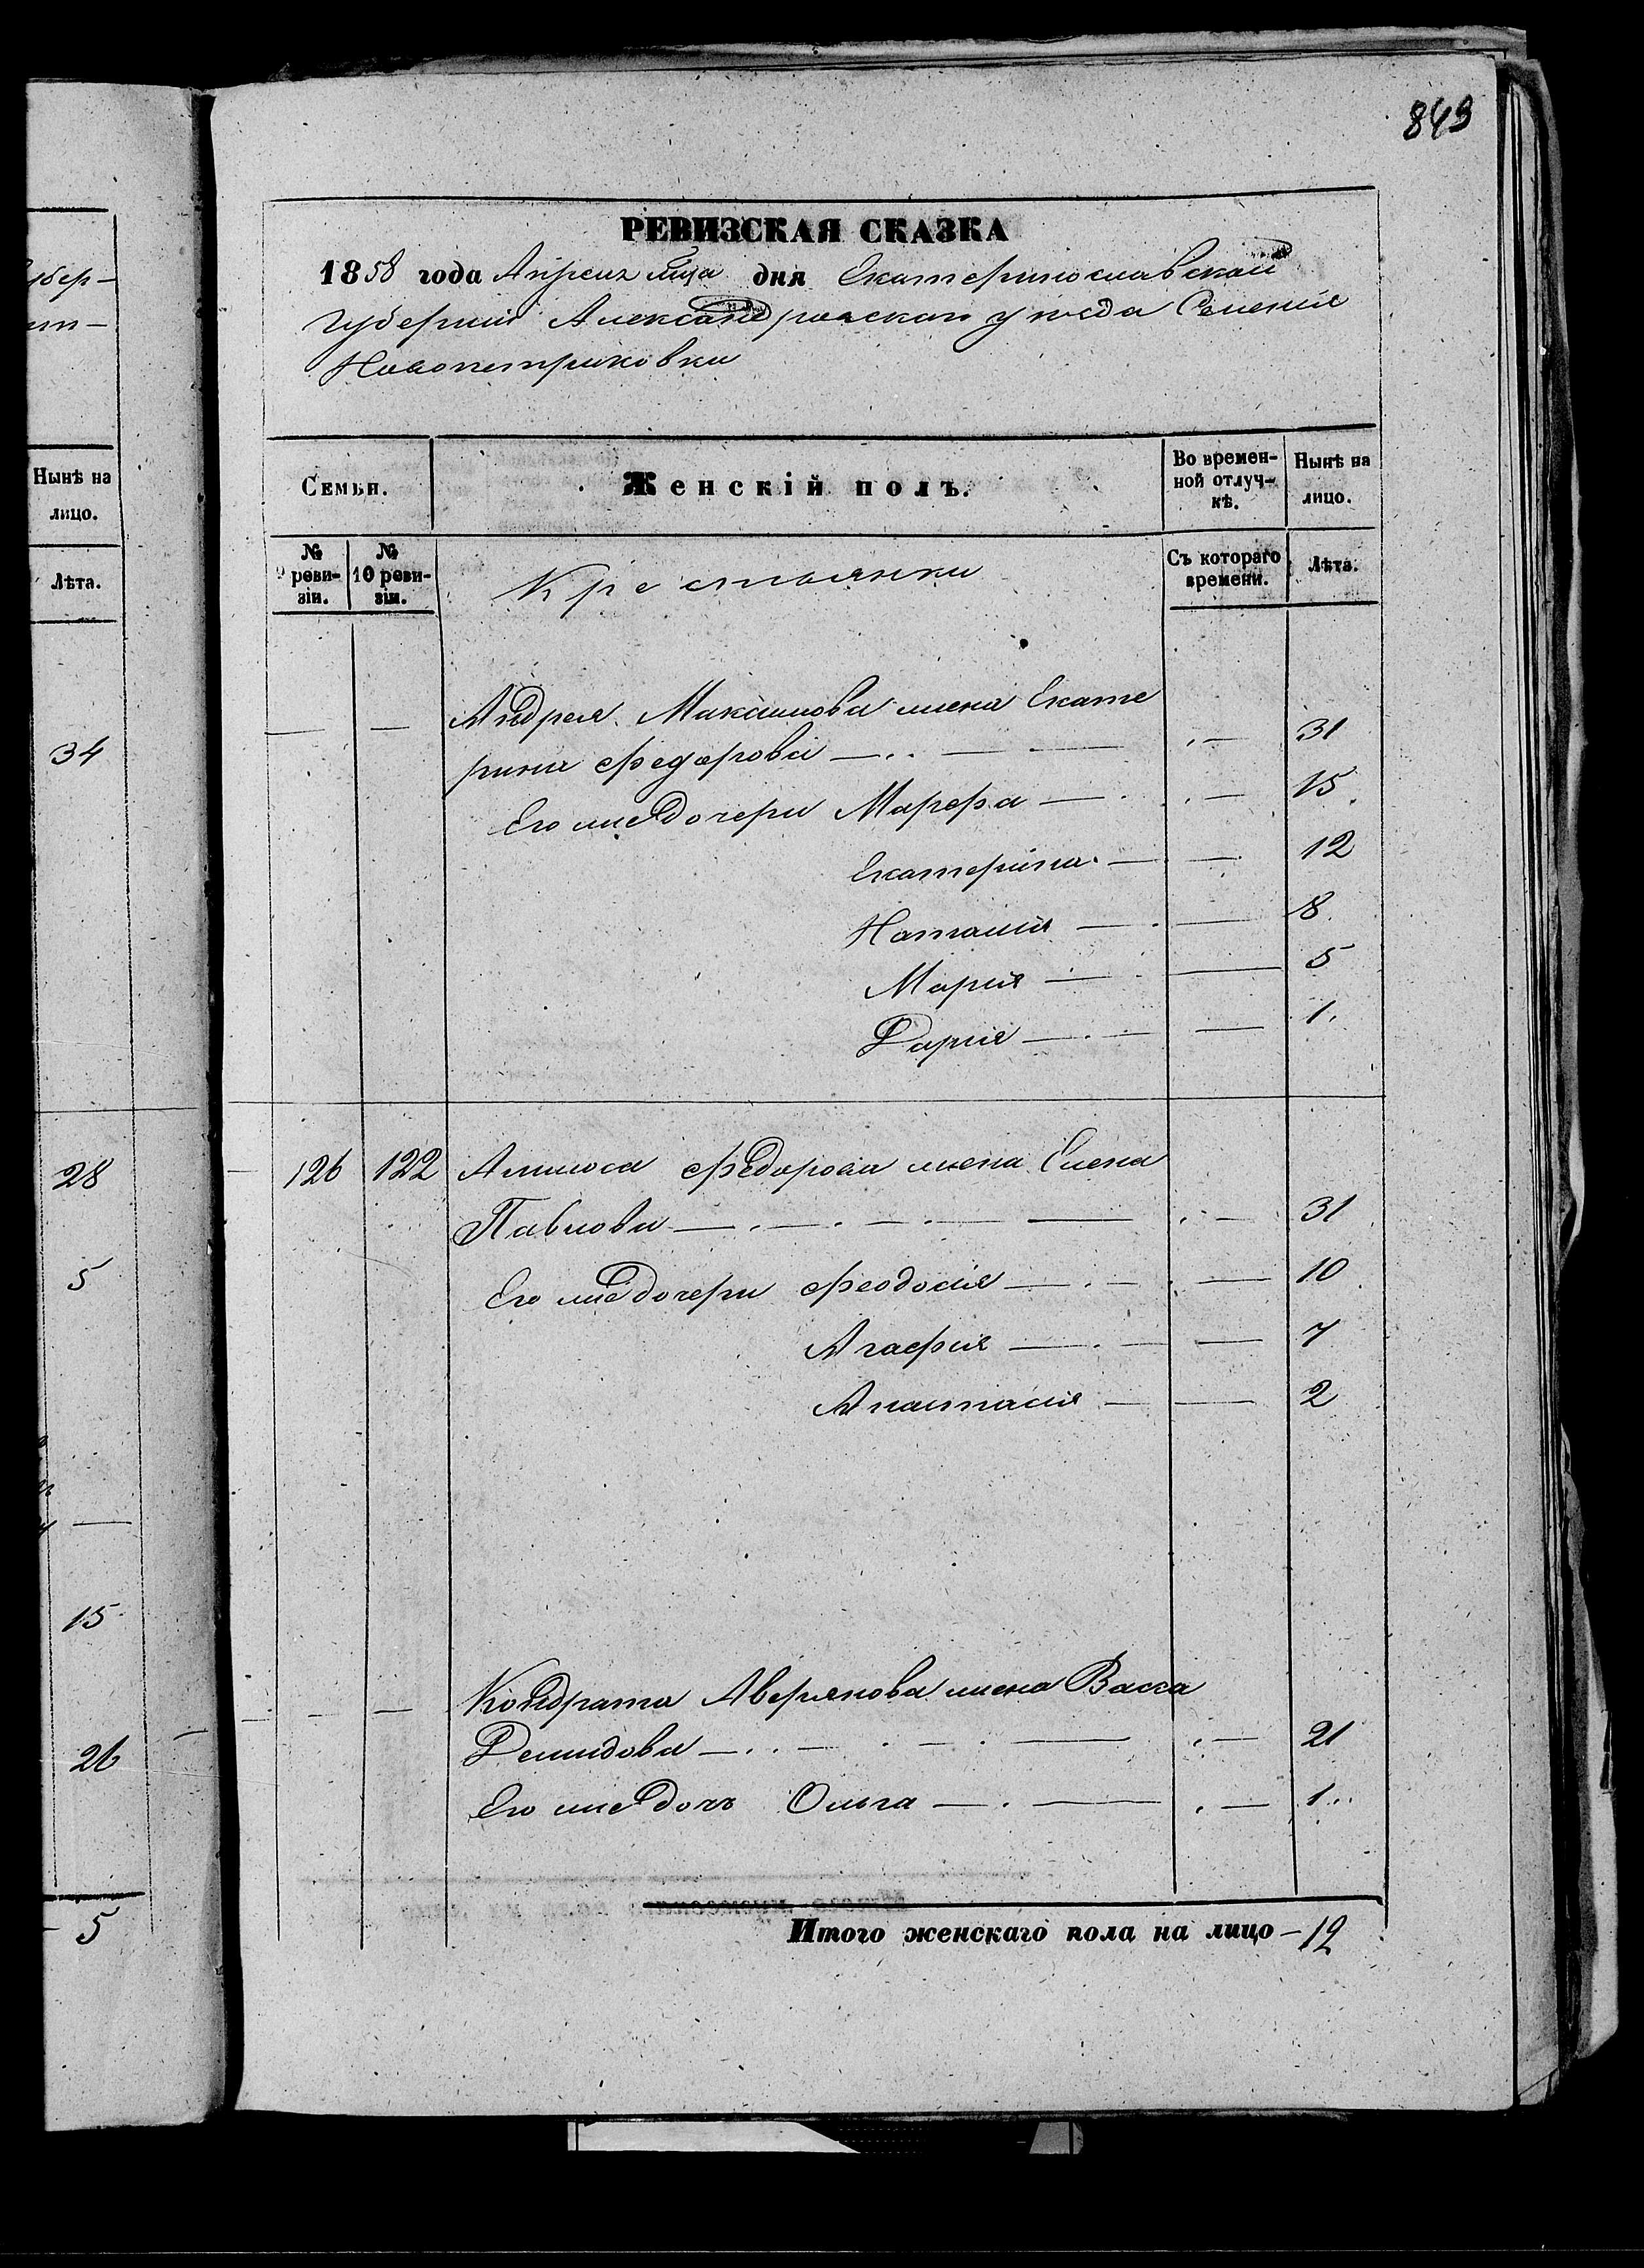 843
РЕВИЗСКАЯ СКАЗКА
1858 года Апреля мца дня Екатеринославской
Губернии Александровскаго уѣзда Селения
Новопетриковки
Губер-
Нынѣ на
лицо.
Лѣта.
34
28
5
15
26
5
Семьи.
Женскій полъ.
Во времен-
ной отлуч-
кѣ.
Нынѣ на
лицо.
№
9 реви-
зіи.
№
10 реви-
зіи.
Крестьянки
Съ котораго
времени.
Лѣта.
— — Андрея Максимова жена Екате
рина Федорова — — 31
Его же дочери Марфа — — 15
Екатерина — — 12
Наталия — — 8
Мария — — 5
Дария — — 1
126 122 Федорова жена Елена
Павлова — — 31
Его же дочери Феодосия — — 10
Агафия — — 7
Анастасия — — 2
— — Кондрата Аверянова жена Васса
Демидова — — 21
Его же дочь Ольга — — 1
Итого женскаго пола на лицо — 12